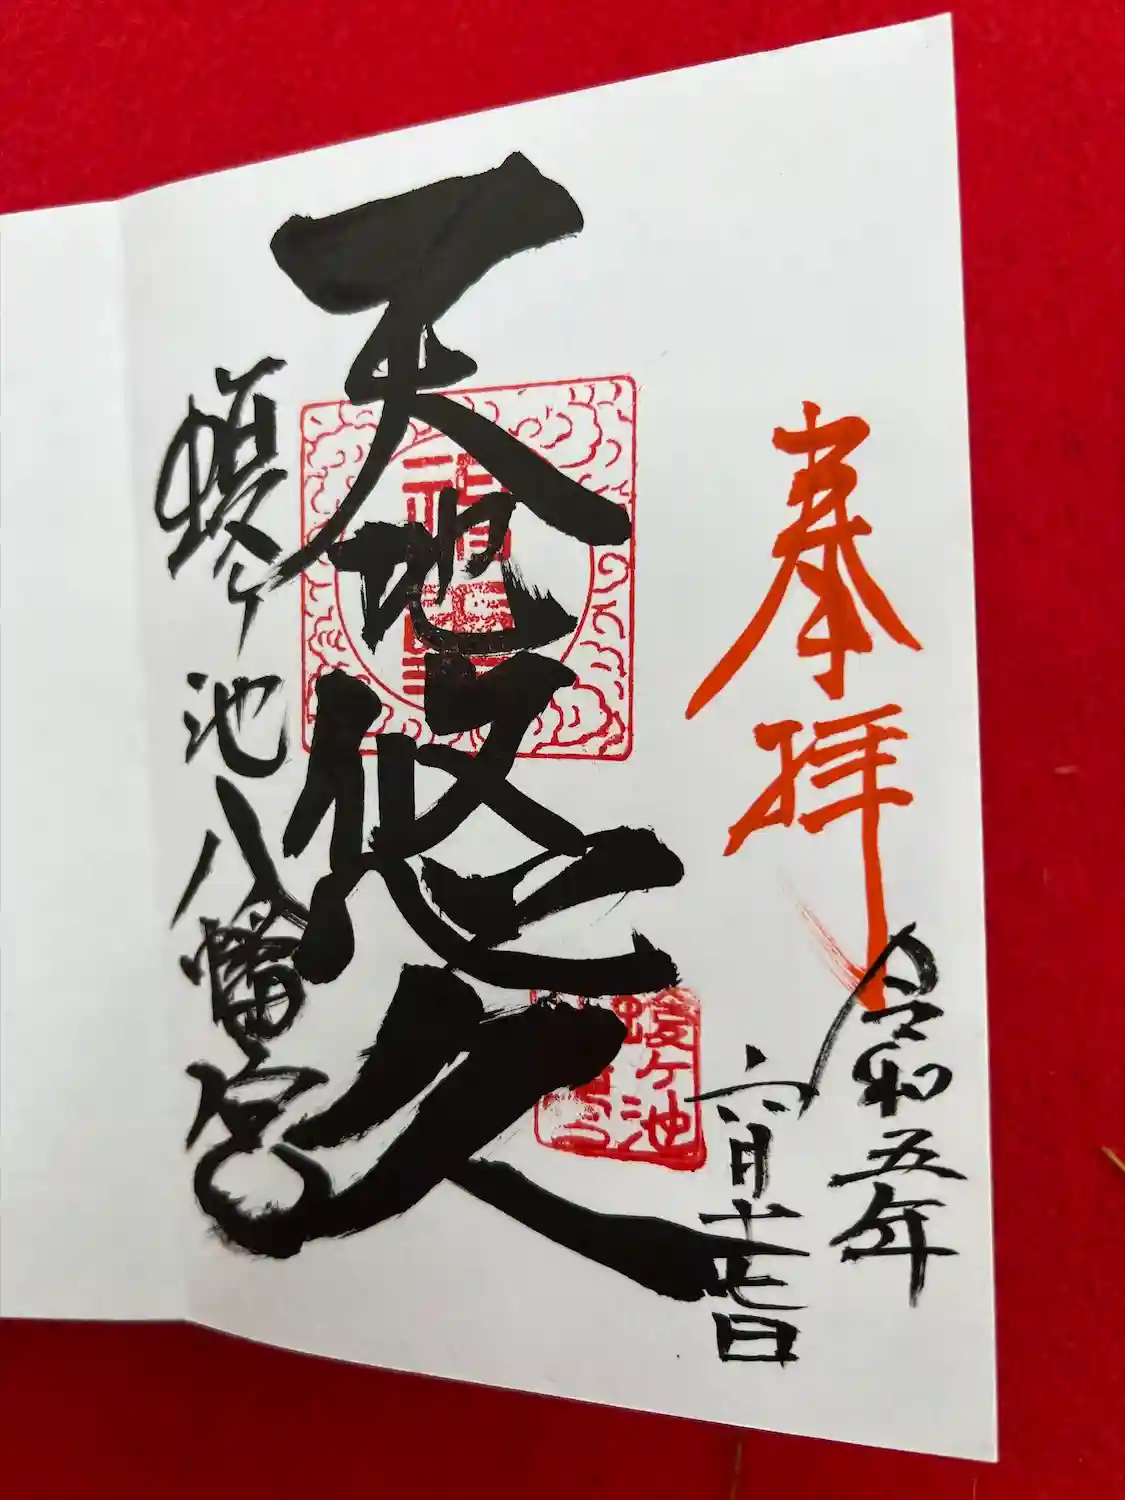 奉拝
令和五年
六月十七日
天地悠久
蝦ヶ池八幡宮
蝦ヶ池